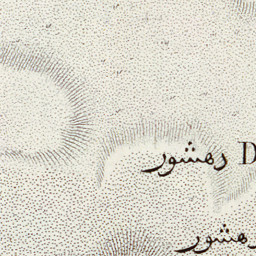 دهشور D
دهشور